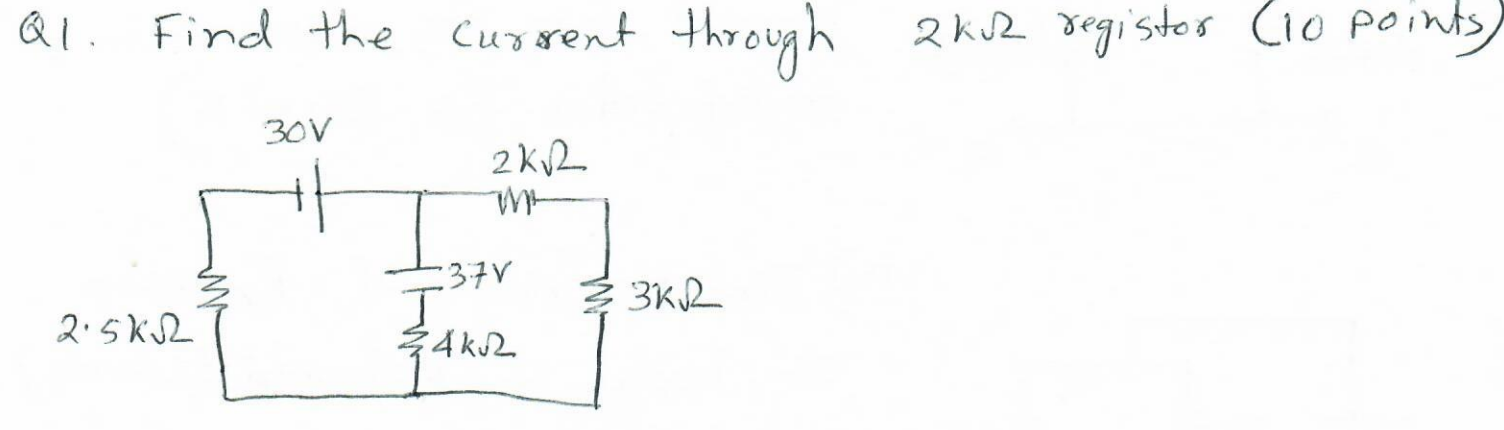 Q1. Find the current through 2kΩ registor (10 points)
30V
2kΩ
37V
3kΩ
2.5kΩ
4kΩ